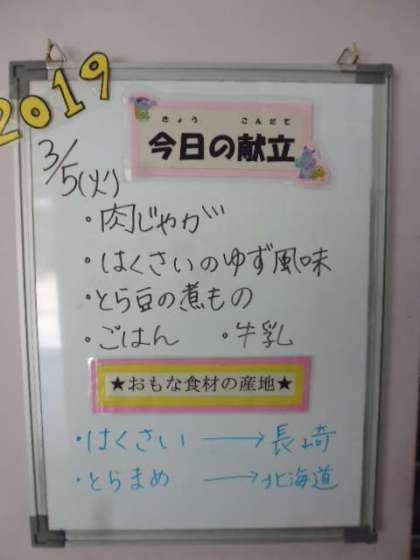 2019
きょう こんだて
今日の献立
3/5(火)
・肉じゃが
・はくさいのゆず風味
・とら豆の煮もの
・ごはん ・牛乳
★おもな食材の産地★
・はくさい → 長崎
・とらまめ → 北海道